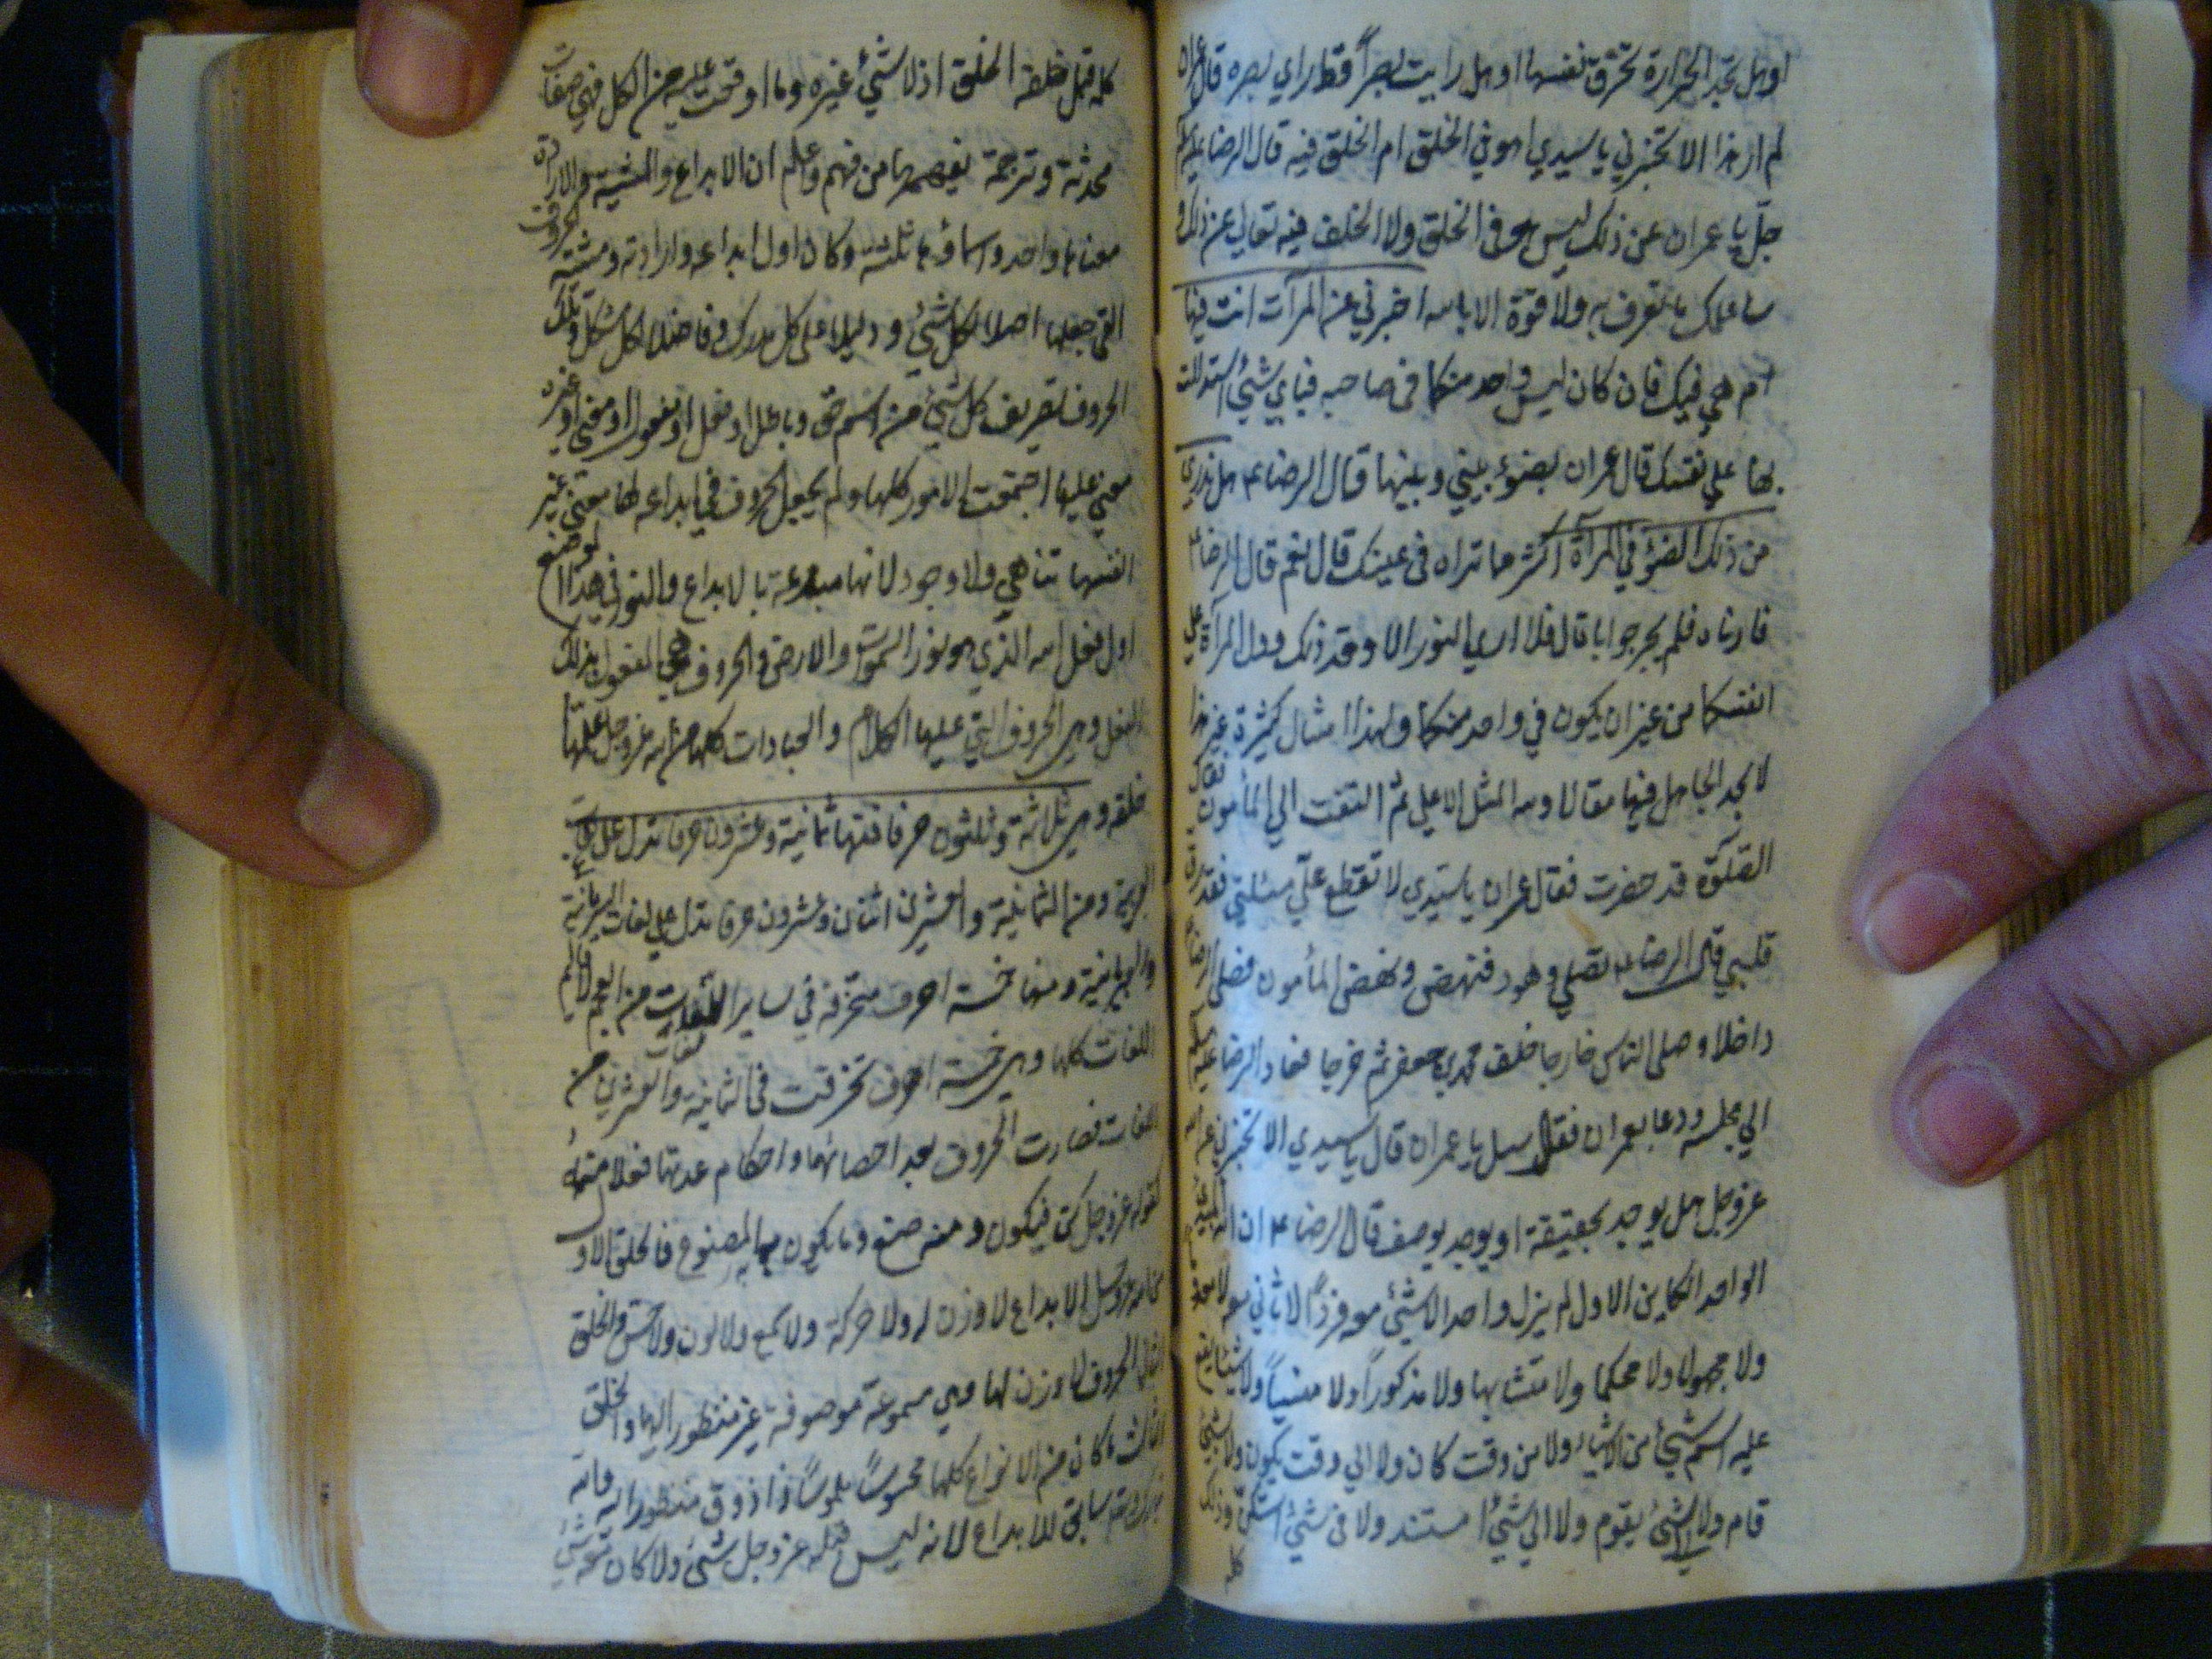 او هل تجد الحرارة تحرق نفسها او هل رايت بصراً قط راي بصره قال عمران
لم ار هذا الا تخبرني يا سيدي اهو في الخلق ام الخلق فيه قال الرضا عليه السلم
جلّ يا عمران عن ذلك ليس هو في الخلق ولا الخلق فيه تعالي عن ذلك و
ساعلمك ما تعرف به ولا قوّة الا بالله اخبرني عن المرآت انت فيها
ام هي فيك فان كان ليس واحد منكما في صاحبه فباي شئ استدللت
بها علي نفسك قال عمران بضوء بيني وبينها قال الرضا ع هل تري
من ذلك الضوء في المرآة اكثر مما تراه في عينك قال نعم قال الرضا ع
فارناه فلم يحر جوابا قال فلا اري النور الا وقد دلك ودل المرآة علي
انفسكما من غير ان يكون في واحد منكما ولهذا امثال كثيرة غير هذا
لا يجد الجاهل فيها مقالا ولله المثل الاعلي ثمّ التفت الي المأمون فقال
الصلوة قد حضرت فقال عمران يا سيّدي لا تقطع علّي مسئلتي فقد رق
قلبي قال الرضا ع نصلي ونعود فنهض ونهض المأمون فصلي الرضا
داخلا وصلي الناس خارجا خلف محمد بن جعفر ثم خرجا فعاد الرضا عليه السلم
الي مجلسه ودعا بعمران فقال سل يا عمران قال يا سيدي الا تخبرني عن الله
عز وجل هل يوحد بحقيقة او يوحد بوصف قال الرضا ع ان الله المبدئ
الواحد الكاين الاول لم يزل واحدا لا شئ معه فرداً لا ثاني معه لا معلوما
ولا مجهولا ولا محكما ولا متشابها ولا مذكوراً ولا منسياً ولا شيئا يقع
عليه اسم شئ من الاشياء ولا من وقت كان ولا الي وقت يكون ولا بشئ
قام ولا الي شئ يقوم ولا الي شئ استند ولا في شئ استكن وذلك
كله
كله قبل خلقه الخلق اذ لا شئ غيره وما اوقعت عليه من الكل فهي صفات
محدثة وترجمة يفهم بها من فهم واعلم ان الابداع والمشية والارادة
معناها واحد واسماؤها ثلثة وكان اول ابداعه وارادته ومشيته الحروف
التي جعلها اصلا لكل شئ ودليلا علي كل مدرك وفاصلا لكل مشكل وبتلك
الحروف تفريق كل شئ من اسم حق وباطل او فعل او مفعول او معني او غير
معني عليها اجتمعت الامور كلها ولم يجعل للحروف في ابداعه لها معني غير
انفسها تتناهي ولا وجود لانها مبدعة بالابداع والنور في هذا الموضع
اول فعل الله الذي هو نور السموات والارض والحروف هي المفعول بذلك
الفعل وهي الحروف التي عليها الكلام والعبادات كلها من الله عز وجل علمها
خلقه وهي ثلاثة وثلثون حرفا فمنها ثمانية وعشرون حرفا تدل علي لغات
العربية ومن الثمانية والعشرين اثنان وعشرون حرفا تدل علي لغات السريانية
والعبرانية ومنها خمسة احرف متحرفة في ساير اللغات من العجم لاقاليم
اللغات كلها وهي خمسة احرف تحرفت في الثمانية والعشرين من
اللغات فصارت الحروف بعد احصائها واحكام عدتها فعلا منه
كقوله عز وجل كن فيكون وكن منه صنع وما يكون به المصنوع فالخلق الاول
من الله عز وجل الابداع لا وزن له ولا حركة ولا سمع ولا لون ولا حس والخلق
الثاني الحروف لا وزن لها وهي مسموعة موصوفة غير منظور اليها والخلق
الثالث ما كان من الانواع كلها محسوساً ملموساً ذا ذوق منظورا اليه والله
تبارك وتعالي سابق للابداع لانه ليس قبله عز وجل شئ ولا كان معه شئ